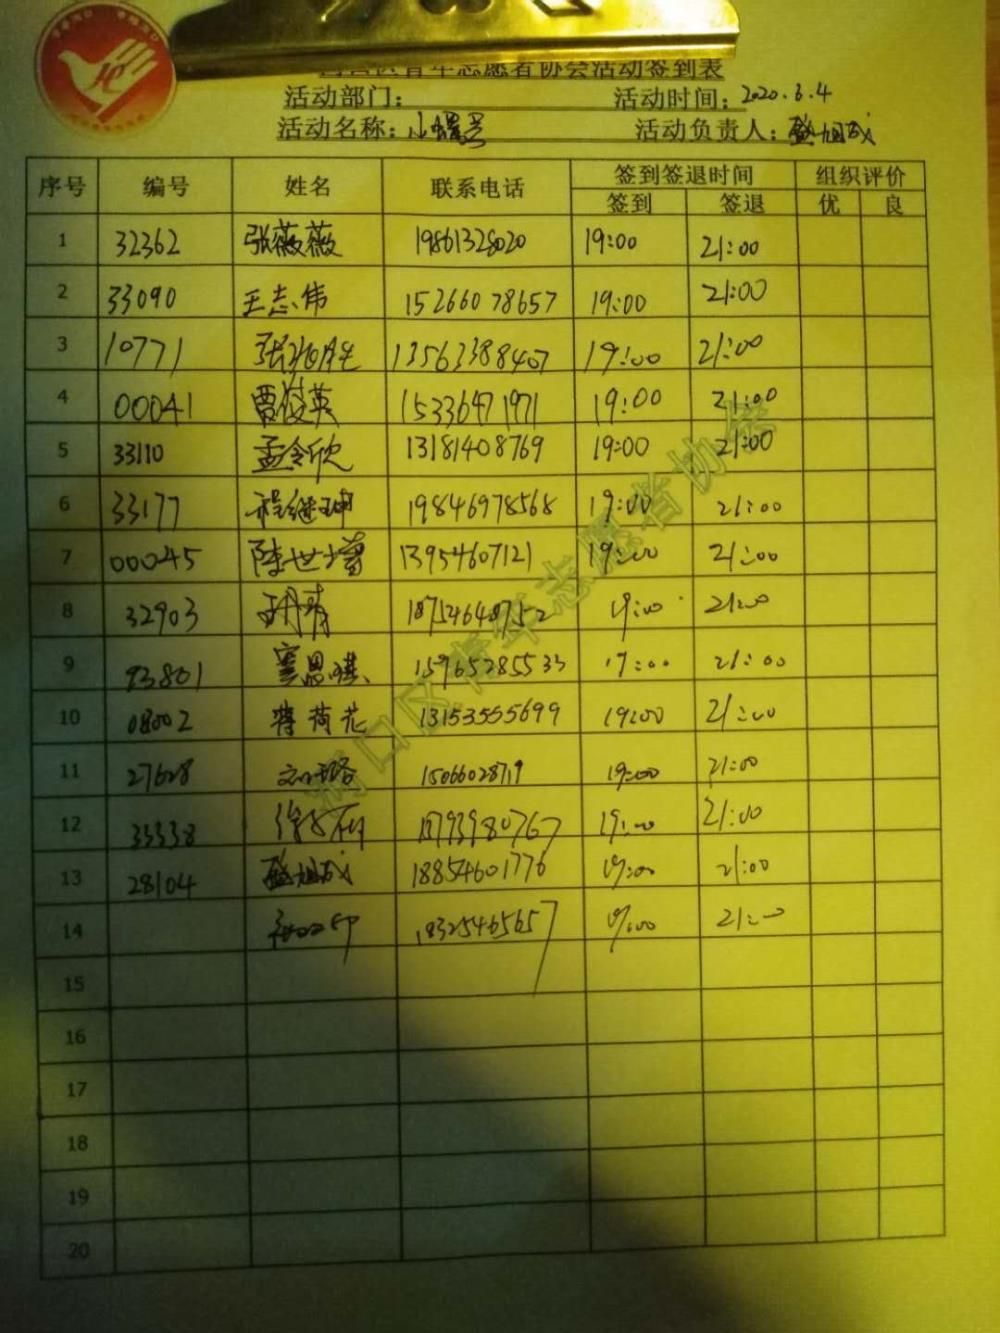 河口区青年志愿者协会活动签到表
活动部门： 活动时间：2020.6.4
活动名称：小蝶兰 活动负责人：盛旭成
序号 编号 姓名 联系电话 签到签退时间 组织评价
签到 签退 优 良
1 32362 张薇薇 19861328020 19:00 21:00
2 33090 王志伟 15266078657 19:00 21:00
3 10771 13563388407 19:00 21:00
4 00041 贾俊英 15336471971 19:00 21:00
5 33110 孟令欣 13181408769 19:00 21:00
6 33177 程继坤 19846978568 19:00 21:00
7 00045 陈世增 13954607121 19:00 21:00
8 32903 19:00 21:00
9 93801 15965285533 17:00 21:00
10 08002 蒋荷花 13153555699 19:00 21:00
11 27628 15066028719 19:00 21:00
12 33338 19:00 21:00
13 28104 盛旭成 18854601776 19:00 21:00
14 18325465657 19:00 21:00
15
16
17
18
19
20
河口区青年志愿者协会